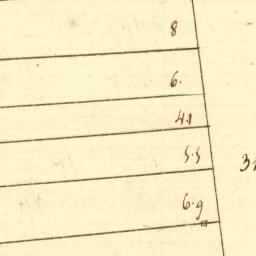 8
6.
4.1
5.5
6.9